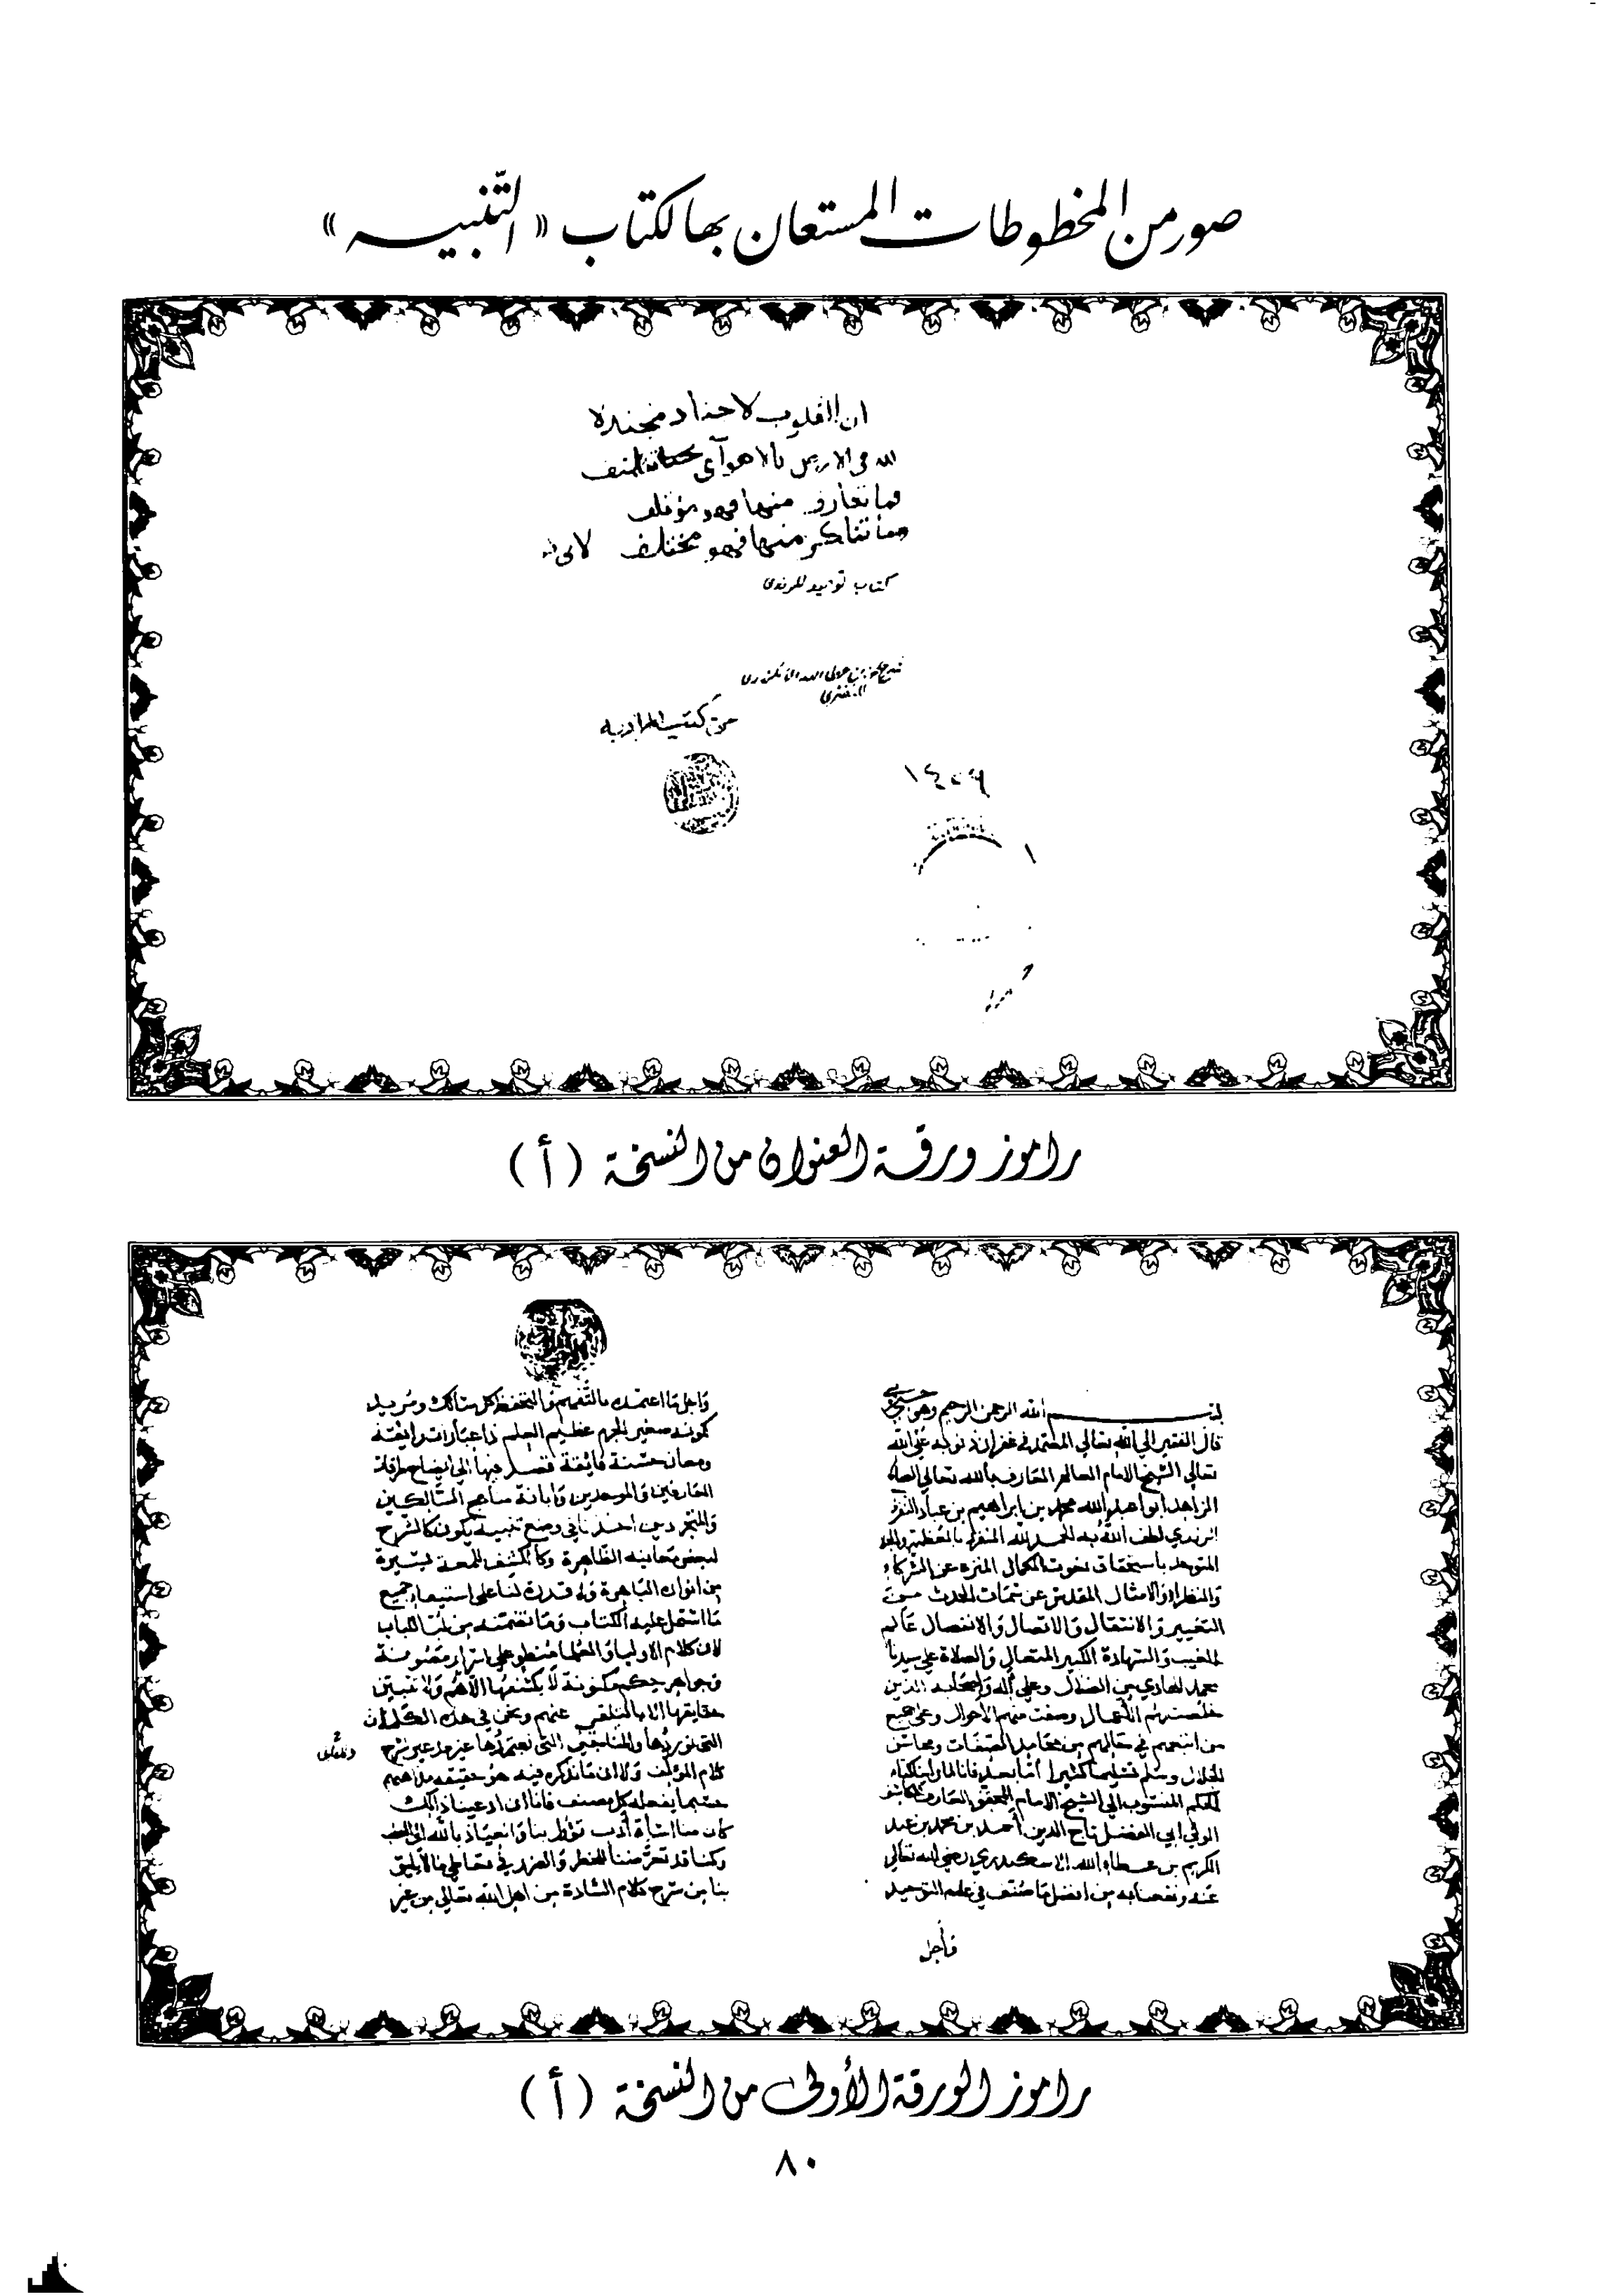 صور من المخطوطات المستعان بها لكتاب «التنبيه»
ان القلوب لاجناد مجندة
لله في الارض بالاهواء
فما تعارف منها فهو مؤتلف
وما تناكر منها فهو مختلف
كتاب للرندي
من كتب
١٤٥٩
راموز ورقة العنوان من النسخة (أ)
بسم الله الرحمن الرحيم وهو حسبي
قال الفقير إلى الله تعالى المعتمد في غفران ذنوبه على الله
تعالى الشيخ الامام العالم العارف بالله تعالى
الزاهد ابو عبد الله محمد بن إبراهيم بن عباد النفزي
الرندي لطف الله به الحمد لله المنفرد بالعظمة والجلال
المتوحد باستحقاق نعوت الكمال المنزه عن الشركاء
والنظراء والامثال المقدس عن سمات الحدث من
التغيير والانتقال والاتصال والانفصال عالم
الغيب والشهادة الكبير المتعال والصلاة على سيدنا
محمد الهادي من الضلال وعلى آله وأصحابه الذين
خلصت لهم الأعمال وصفت منهم الاحوال وعلى جميع
من اتبعهم في مقالهم من محامد الصفات ومحاسن
الخلال وسلم تسليما كثيرا أما بعد فانا لما راينا كتاب
الحكم المنسوب إلى الشيخ الامام المحقق العارف المكاشف
الولي ابي الفضل تاج الدين أحمد بن محمد بن عبد
الكريم بن عطاء الله الاسكندري رضي الله تعالى
عنه ونفعنا به من افضل ما صنف في علم التوحيد
وأجل
واجل ما اعتمده بالتفهم والتحفظ كل سالك ومريد
لكونه صغير الجرم عظيم العلم ذا عبارات رايقة
ومعان حسنة فايقة قصد فيها إلى إيضاح طريقة
العارفين والموحدين وابانة مناهج السالكين
والمتجردين اخذنا في وضع تنبيه يكون كالشرح
لبعض معانيه الظاهرة وكالكشف للمعة يسيرة
من انواره الباهرة ولا قدرة لنا على استيفاء جميع
ما اشتمل عليه الكتاب وما تضمنه من لباب اللباب
لان كلام الاولياء والعلماء منطو على اسرار مصونة
وجواهر حكم مكنونة لا يكشفها الا هم ولا تتبين
حقايقها الا بالتلقي عنهم ونحن في هذه الكلمات
التي نوردها والمناحي التي نعتمدها غير مدعين شرح
كلام المؤلف ولا ان ما نذكره فيه هو حقيقة مذاهبهم
حسبما يفعله كل مصنف فانا ان ادعينا ذلك
كان منا اساءة أدب
وكنا قد تعرضنا للخطر والضرر في تعاطي ما لا يليق
بنا من شرح كلام السادة من اهل الله تعالى من غير
راموز الورقة الأولى من النسخة (أ)
٨٠